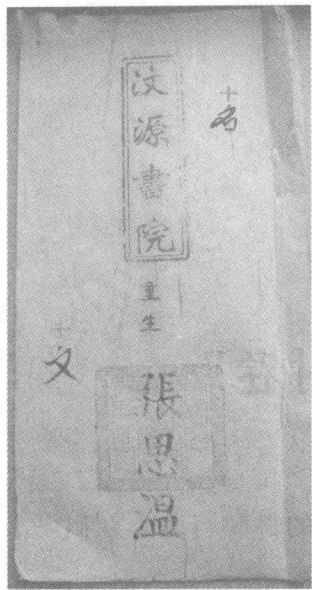 十名
汶源書院
童生
張思溫
十文